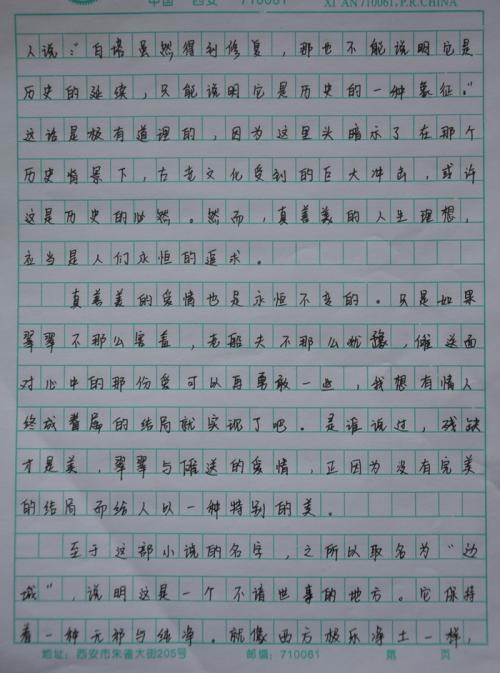 中国 西安 710061 XI'AN 710061, P.R. CHINA
人说：“白塔虽然得到修复，那也不能说明它是
历史的延续，只能说明它是历史的一种象征。”
这话是极有道理的，因为这里头暗示了在那个
历史情景下，古老文化受到的巨大冲击，或许
这是历史的必然。然而，真善美的人生理想，
应当是人们永恒的追求。
真善美的爱情也是永恒不变的。只是如果
翠翠不那么害羞，老船夫不那么犹豫，傩送面
对心中的那份爱可以再勇敢一些，我想有情人
终成眷属的结局就实现了吧。是谁说过，残缺
才是美，翠翠与傩送的爱情，正因为没有完美
的结局而给人以一种特别的美。
至于这部小说的名字，之所以取名为“边
城”，说明这是一个不谙世事的地方。它保持
着一种无邪与纯净。就像西方极乐净土一样，
地址：西安市朱雀大街205号 邮编：710061 第 页